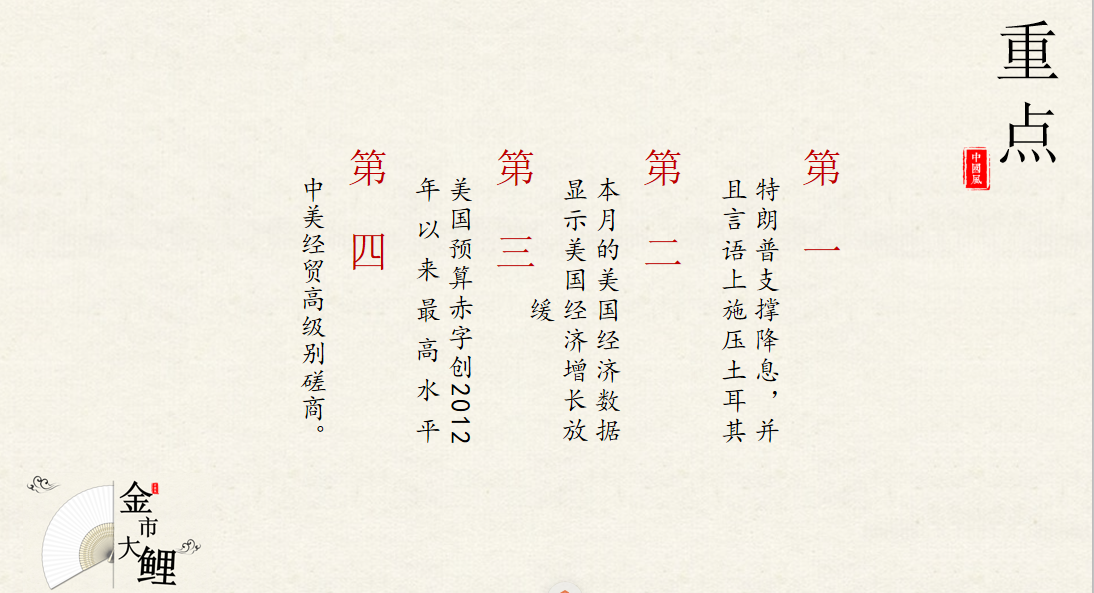 重点
中國風
第一
特朗普支撑降息，并
且言语上施压土耳其
第二
本月的美国经济数据
显示美国经济增长放
缓
第三
美国预算赤字创2012
年以来最高水平
第四
中美经贸高级别磋商。
金市大鲤